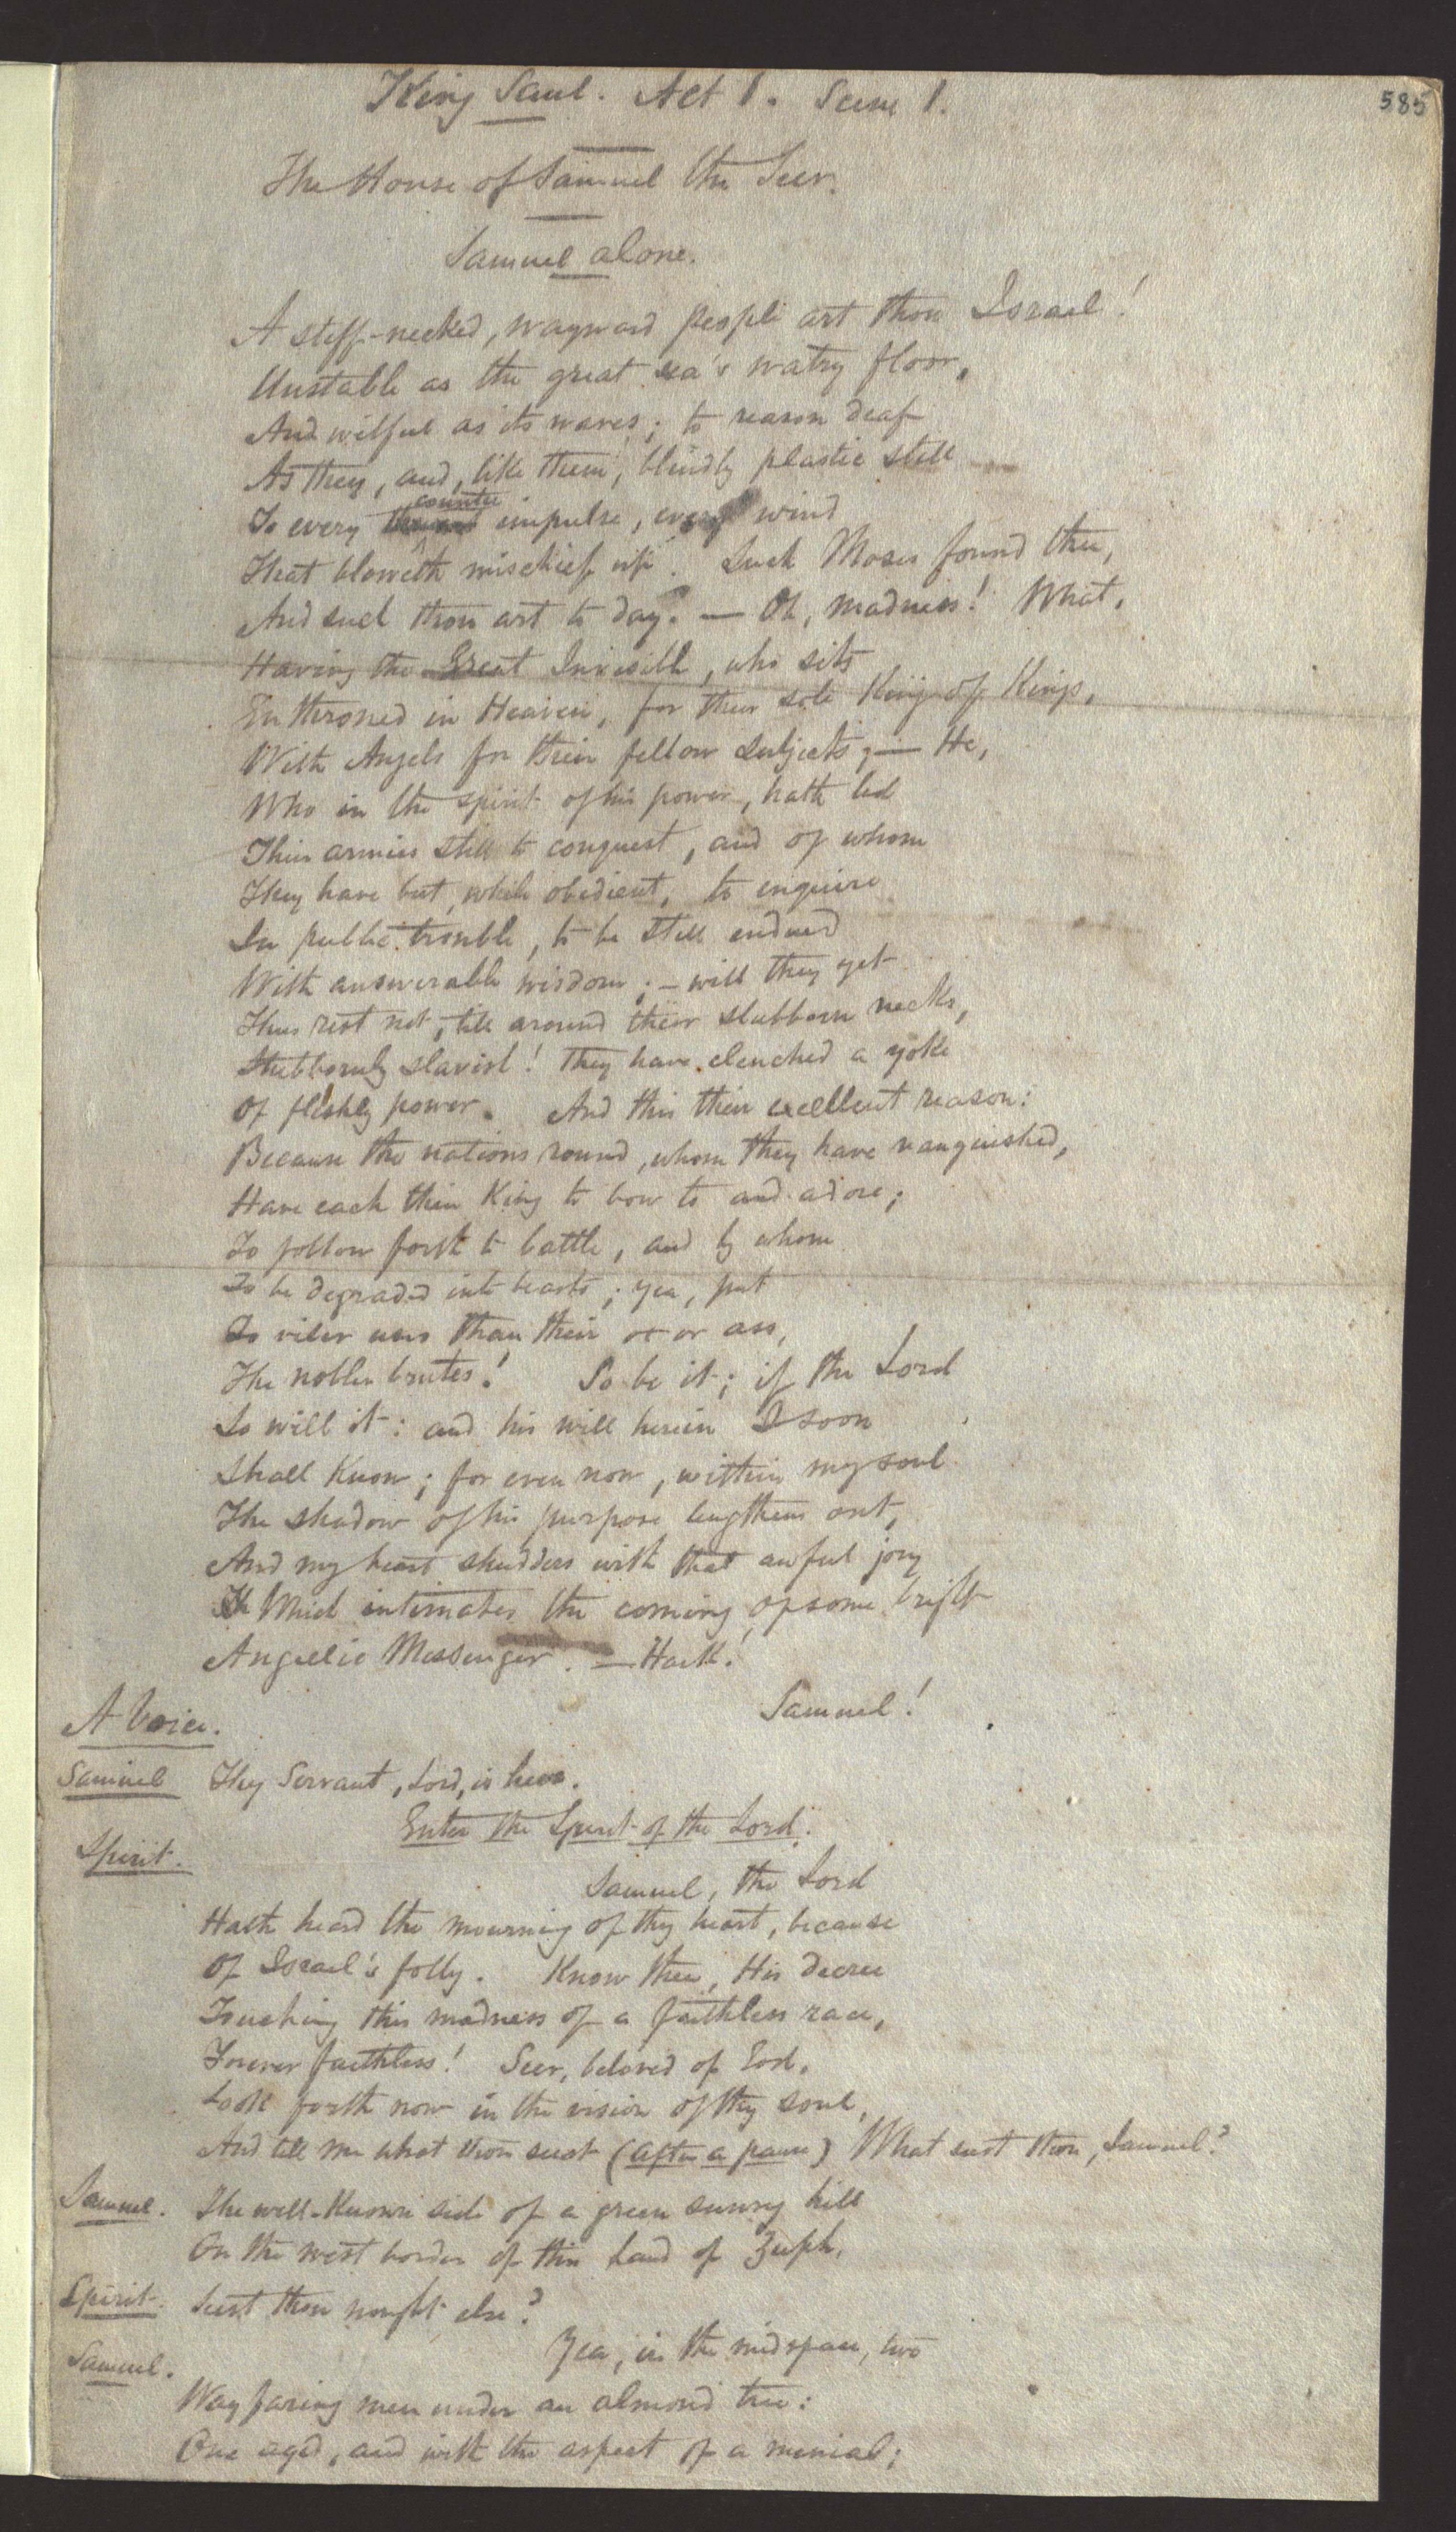 585
King Saul. Act 1. Scene 1.
The House of Samuel the Seer.
Samuel alone.
A stiff-necked, wayward people art thou Israel!
Unstable as the great sea's watry floor,
And wilful as its waves; to reason deaf
As they, and, like them, blindly plastic still
counter
To every impulse, every wind
That bloweth mischief up. Such Moses found thee,
And such thou art to day. — Oh, madness! What,
Having the Great Invisible, who sits
Enthroned in Heaven, for their sole King of Kings,
With Angels for their fellow subjects; — He,
Who in the spirit of his power, hath led
Their armies still to conquest, and of whom
They have but, while obedient, to enquire
In public trouble, to be still endued
With answerable wisdom; — will they yet
Thus rest not, till around their stubborn necks,
Stubbornly slavish! they have clenched a yoke
Of fleshly power. And this their excellent reason:
Because the nations round, whom they have vanquished,
Have each their King to bow to and adore;
To follow forth to battle, and by whom
To be degraded into beasts; yea, put
To viler uses than their ox or ass,
The nobler brutes! So be it; if the Lord
So will it: and his will herein I soon
Shall know; for even now, within my soul
The shadow of his purpose lengthens out,
And my heart shudders with that awful joy
Which intimates the coming of some bright
Angelic Messenger. — Hark!
A Voice. Samuel!
Samuel Thy Servant, Lord, is here.
Enter the Spirit of the Lord.
Spirit. Samuel, the Lord
Hath heard the mourning of thy heart, because
Of Israel's folly. Know then, His decree
Touching this madness of a faithless race,
Forever faithless! Seer, beloved of God,
Look forth now in the vision of thy soul,
And tell me what thou seest (after a pause) What seest thou, Samuel?
Samuel. The well-known side of a green sunny hill
On the west border of this Land of Zuph.
Spirit. Seest thou nought else?
Samuel. Yea, in the midspace, two
Wayfaring men under an almond tree:
One aged, and with the aspect of a menial;